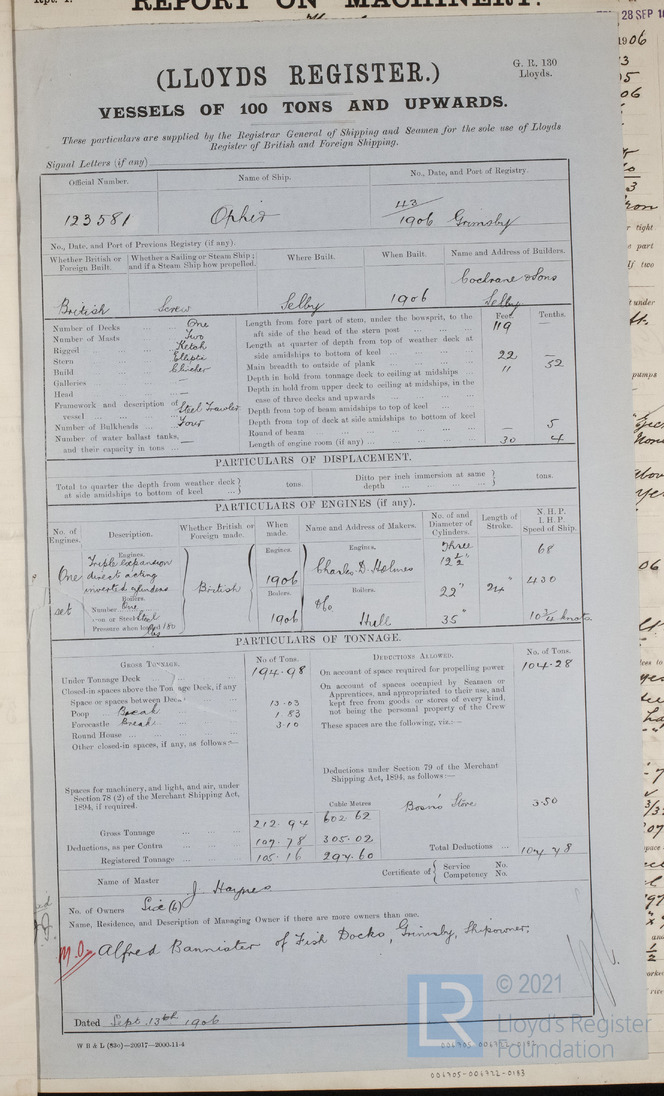 REPORT ON MACHINERY.
28 SEP
1906
(LLOYDS REGISTER.)
G. R. 130
Lloyds.
VESSELS OF 100 TONS AND UPWARDS.
These particulars are supplied by the Registrar General of Shipping and Seamen for the sole use of Lloyds
Register of British and Foreign Shipping.
Signal Letters (if any)
Official Number. Name of Ship. No., Date, and Port of Registry.
123581 Ophir 43/1906 Grimsby
No., Date, and Port of Previous Registry (if any).
Whether British or Foreign Built. Whether a Sailing or Steam Ship; and if a Steam Ship how propelled. Where Built. When Built. Name and Address of Builders.
British Screw Selby 1906 Cochrane & Sons Selby
Feet. Tenths.
Number of Decks ... One
Number of Masts ... Two
Rigged ... Ketch
Stern ... Elliptic
Build ... Clincher
Galleries ... —
Head ... —
Framework and description of vessel ... Steel Trawler
Number of Bulkheads ... Four
Number of water ballast tanks, and their capacity in tons ... —
Length from fore part of stem, under the bowsprit, to the aft side of the head of the stern post ... 119 —
Length at quarter of depth from top of weather deck at side amidships to bottom of keel ...
Main breadth to outside of plank ... 22 —
Depth in hold from tonnage deck to ceiling at midships ... 11 52
Depth in hold from upper deck to ceiling at midships, in the case of three decks and upwards ...
Depth from top of beam amidships to top of keel ...
Depth from top of deck at side amidships to bottom of keel
Round of beam ... — 5
Length of engine room (if any) ... 30 4
PARTICULARS OF DISPLACEMENT.
Total to quarter the depth from weather deck at side amidships to bottom of keel ... tons. Ditto per inch immersion at same depth ... tons.
PARTICULARS OF ENGINES (if any).
No. of Engines. Description. Whether British or Foreign made. When made. Name and Address of Makers. No. of and Diameter of Cylinders. Length of Stroke. N. H. P. I. H. P. Speed of Ship.
One set
Engines.
Triple expansion
direct acting
inverted cylinders
Boilers.
Number One
Iron or Steel Steel
Pressure when loaded 180 lbs
British
Engines.
1906
Boilers.
1906
Engines.
Charles D. Holmes
Boilers.
do. Hull
Three
12½"
22"
35"
24"
68
430
10¾ knots
PARTICULARS OF TONNAGE.
GROSS TONNAGE. No of Tons. DEDUCTIONS ALLOWED. No. of Tons.
Under Tonnage Deck ... 194.98
Closed-in spaces above the Tonnage Deck, if any
Space or spaces between Decks
Poop Break 13.03
Forecastle Break 1.83
Round House ... 3.10
Other closed-in spaces, if any, as follows:—
Spaces for machinery, and light, and air, under Section 78 (2) of the Merchant Shipping Act, 1894, if required.
On account of space required for propelling power 104.28
On account of spaces occupied by Seamen or Apprentices, and appropriated to their use, and kept free from goods or stores of every kind, not being the personal property of the Crew
These spaces are the following, viz.:—
Deductions under Section 79 of the Merchant Shipping Act, 1894, as follows:—
Cubic Metres
Bosn's Store 3.50
Gross Tonnage ... 212.94 602.62
Deductions, as per Contra ... 107.78 305.02
Registered Tonnage ... 105.16 297.60
Total Deductions ... 107.78
Name of Master J Haynes
Certificate of { Service No. Competency No.
No. of Owners Six (6)
Name, Residence, and Description of Managing Owner if there are more owners than one.
M.O. Alfred Bannister of Fish Docks, Grimsby, Shipowner.
Dated Sept. 13th 1906
W B & L (83c)—20917—2000.11-4
LR
© 2021
Lloyd's Register
Foundation
006705-006722-0183